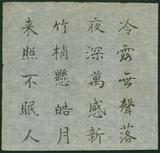 冷露無聲落
夜深萬感新
竹梢懸皓月
来照不眠人